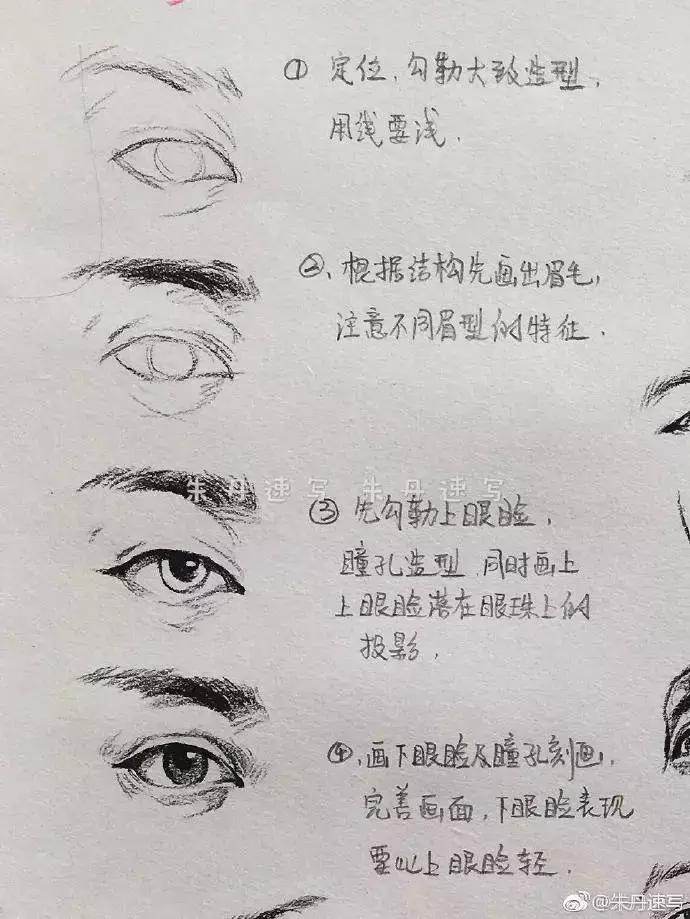 ① 定位、勾勒大致造型，
用线要浅.
②、根据结构先画出眉毛，
注意不同眉型的特征.
朱丹速写 朱丹速写
③ 先勾勒上眼睑，
瞳孔造型，同时画上
上眼睑落在眼珠上的
投影.
④、画下眼睑及瞳孔刻画，
完善画面，下眼睑表现
要比上眼睑轻.
@朱丹速写